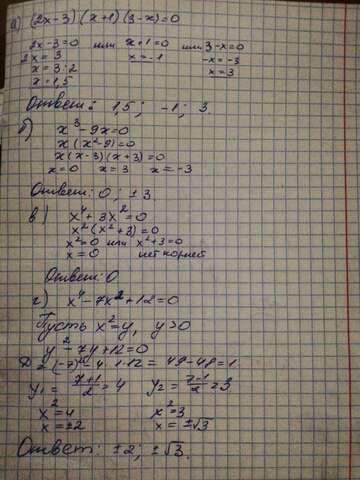 а) (2x-3)(x+1)(3-x)=0
2x-3=0 или x+1=0 или 3-x=0
2x=3 x=-1 -x=-3
x=3:2 x=3
x=1,5
Ответ: 1,5; -1; 3
б) x³-9x=0
x(x²-9)=0
x(x-3)(x+3)=0
x=0 x=3 x=-3
Ответ: 0; ±3
в) x⁴+3x²=0
x²(x²+3)=0
x²=0 или x²+3=0
x=0 нет корней
Ответ: 0
г) x⁴-7x²+12=0
Пусть x²=y, y>0
y²-7y+12=0
D=(-7)²-4·1·12=49-48=1
y₁=(7+1)/2=4 y₂=(7-1)/2=3
x²=4 x²=3
x=±2 x=±√3
Ответ: ±2; ±√3.